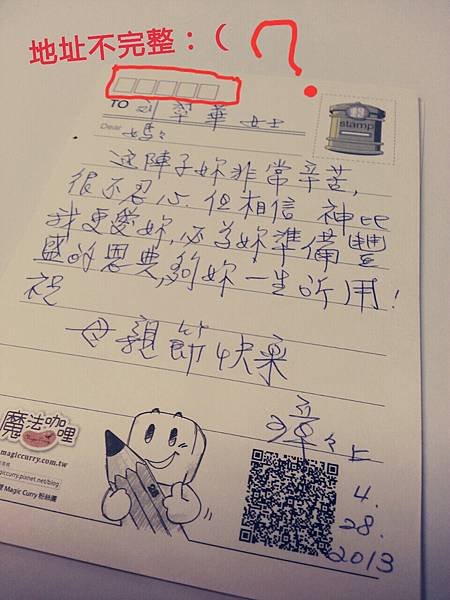 地址不完整：( ?
TO 翠華 女士
stamp
Dear 媽々
这陣子妳非常辛苦,
很不忍心.但相信 神比
我更愛妳,必为妳準備豐
盛的恩典,夠妳一生所用!
祝
母親節快樂
上
4.
28.
2013
魔法咖哩
magiccurry.com.tw
magiccurry.pixnet.net/blog
Magic Curry 粉絲團